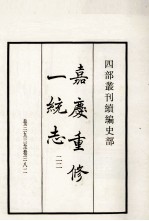 四部叢刊續編史部
嘉慶重修
一統志
二二